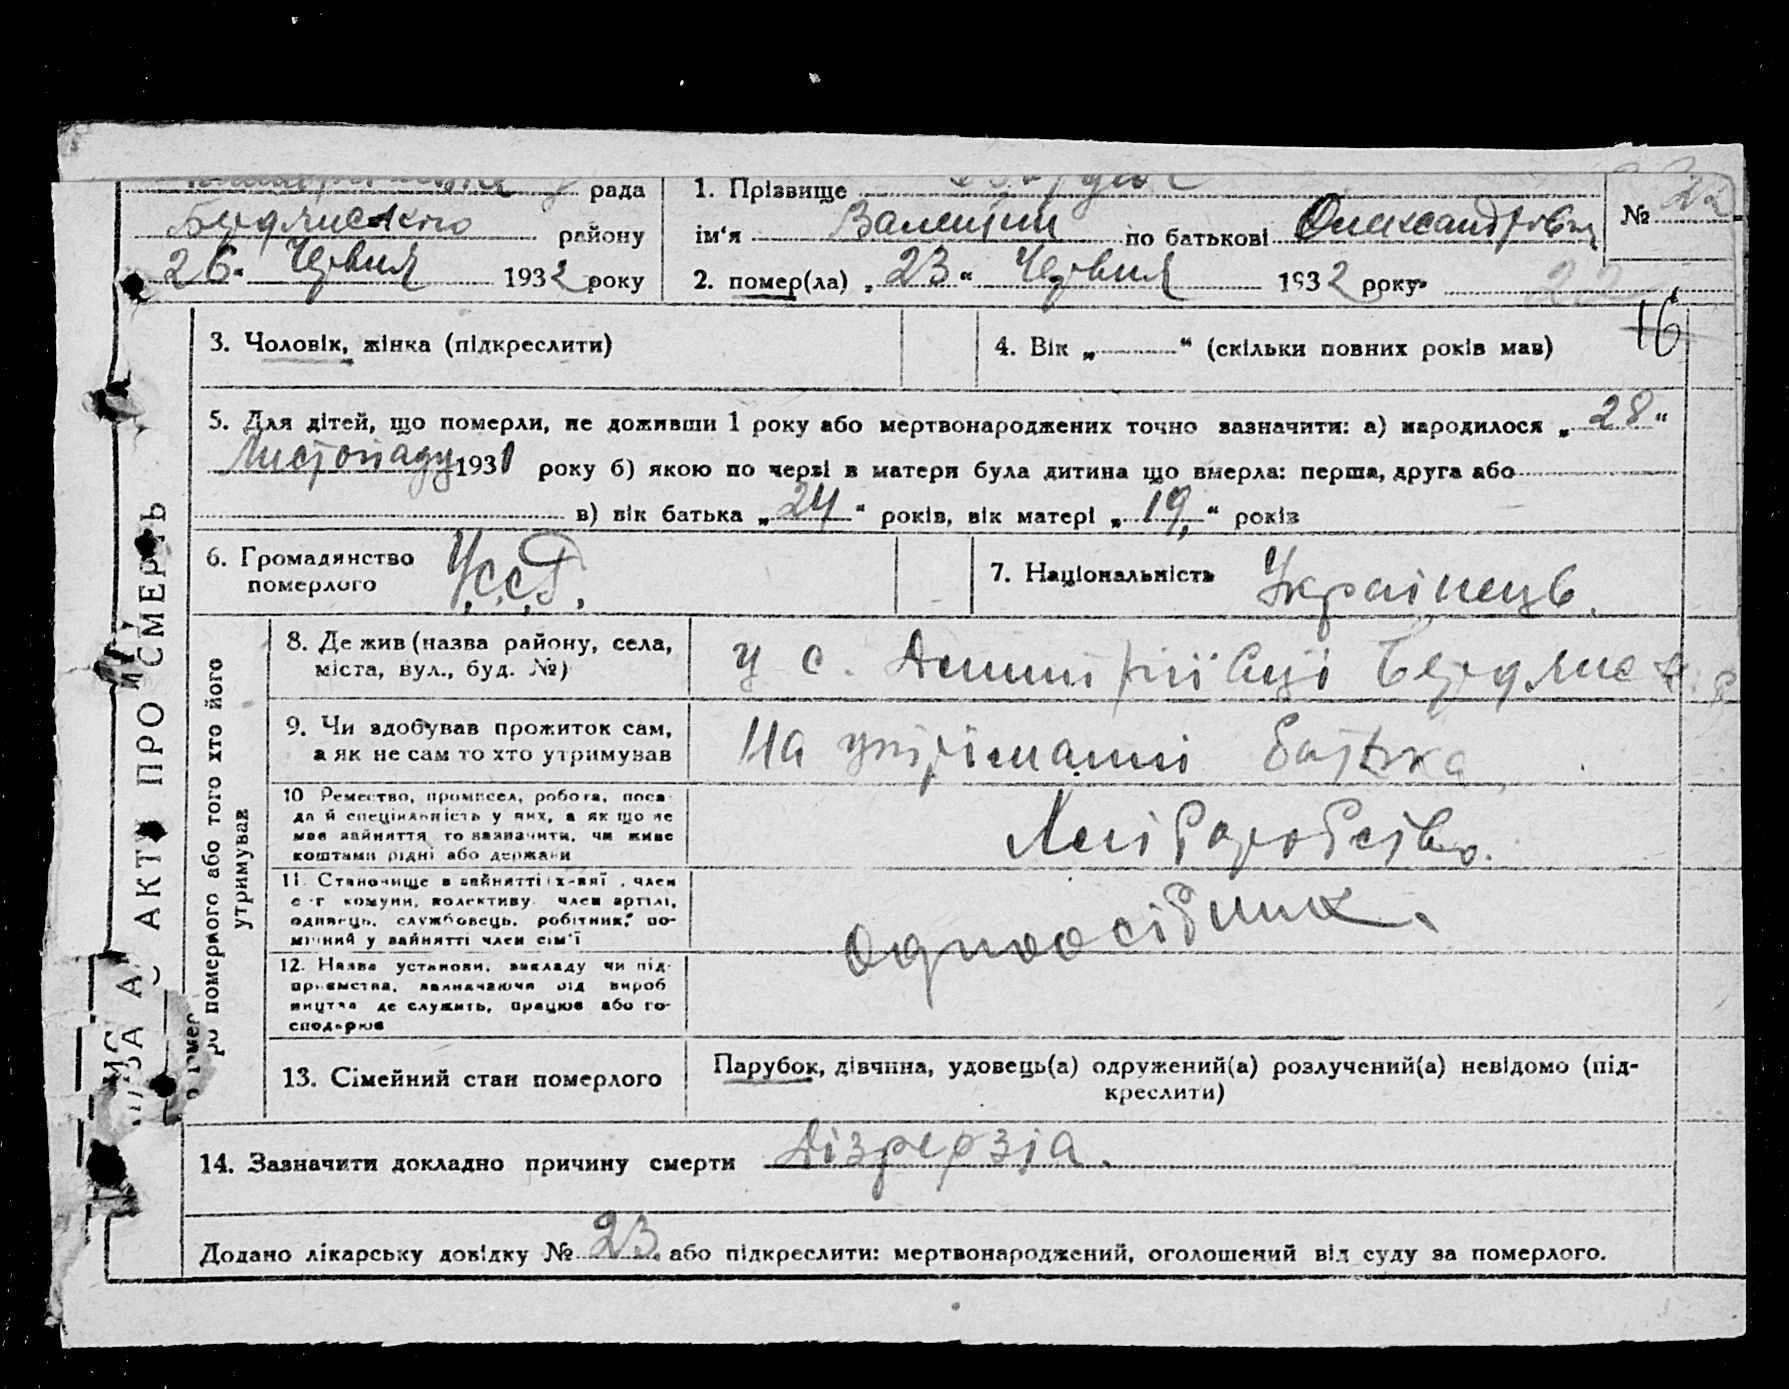 рада
1. Прізвище
№ 22
району
ім‘я Валентин по батькові Олександрович
26. Червня 1932 року
2. помер(ла) „ 23 “ Червня 1932 року
22
16
3. Чоловік, жінка (підкреслити)
4. Вік „ “ (скільки повних років мав)
5. Для дітей, що померли, не доживши 1 року або мертвонароджених точно зазначити: а) народилося „ 28 “
Листопаду 1931 року б) якою по черзі в матери була дитина що вмерла: перша, друга або
в) вік батька „ 24 “ років, вік матері „ 19 “ років
6. Громадянство
померлого
У.С.С.Р.
7. Національність Украінець.
8. Де жив (назва району, села,
міста, вул., буд. №)
у с.
9. Чи здобував прожиток сам,
а як не сам то хто утримував
На утріманні батька
10 Ремество, промисел, робота, поса-
да й спеціяльність у них, а як що не
має зайняття то зазначити, чи живе
коштами рідні або держави
Хліборобство.
11. Становище в зайнятті член
с-г комуни, колективу член артілі,
одинець, службовець, робітник, по-
мічний у зайнятті член сім'ї
Одноосібник.
12. Назва установи, закладу чи під-
приємства, зазначаючи від вироб
ництва де служить, працює або го-
сподарює
13. Сімейний стан померлого
Парубок, дівчина, удовець(а) одружений(а) розлучений(а) невідомо (під-
креслити)
14. Зазначити докладно причину смерти
Додано лікарську довідку № 23 або підкреслити: мертвонароджений, оголошений від суду за померлого.
ПРО СМЕРТЬ
ро померлого або того хто його
утримував